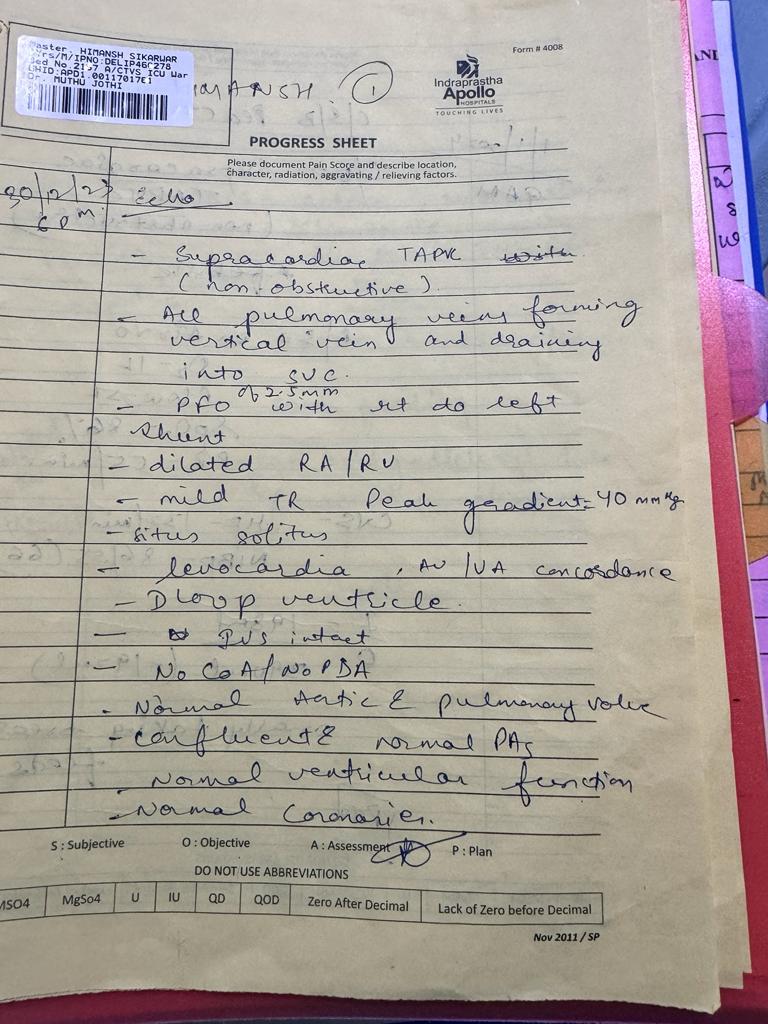 Master. HIMANSH SIKARWAR
Yrs/M/IPNO:DELIP46
Bed No.2157 A/CTVS ICU War
UHID:APD1.0011701
Dr. MUTHU JOTHI
MANSH 1
Form # 4008
Indraprastha
Apollo
HOSPITALS
TOUCHING LIVES
PROGRESS SHEET
Please document Pain Score and describe location,
character, radiation, aggravating / relieving factors.
30/12/23 Echo
6 pm
- Supracardiac TAPVC with
(non obstructive).
- All pulmonary veins forming
vertical vein and draining
into SVC.
- PFO of 2.5mm with rt do left
shunt
- dilated RA/RV
- mild TR Peak geradient = 40 mmHg
- situs solitus
- levocardia, AV/VA concordance
- D loop ventricle.
- IVS intact
- No CoA/No PDA
- Normal Aortic & pulmonary valve
- confluent & normal PAs
- Normal ventricular function
- Normal Coronaries.
S : Subjective O : Objective A : Assessment P : Plan
DO NOT USE ABBREVIATIONS
MSO4 MgSo4 U IU QD QOD Zero After Decimal Lack of Zero before Decimal
Nov 2011 / SP